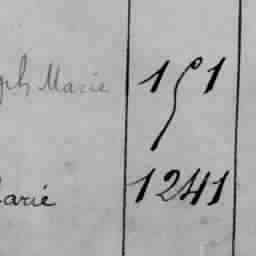 ph Marie 151
arié 1241